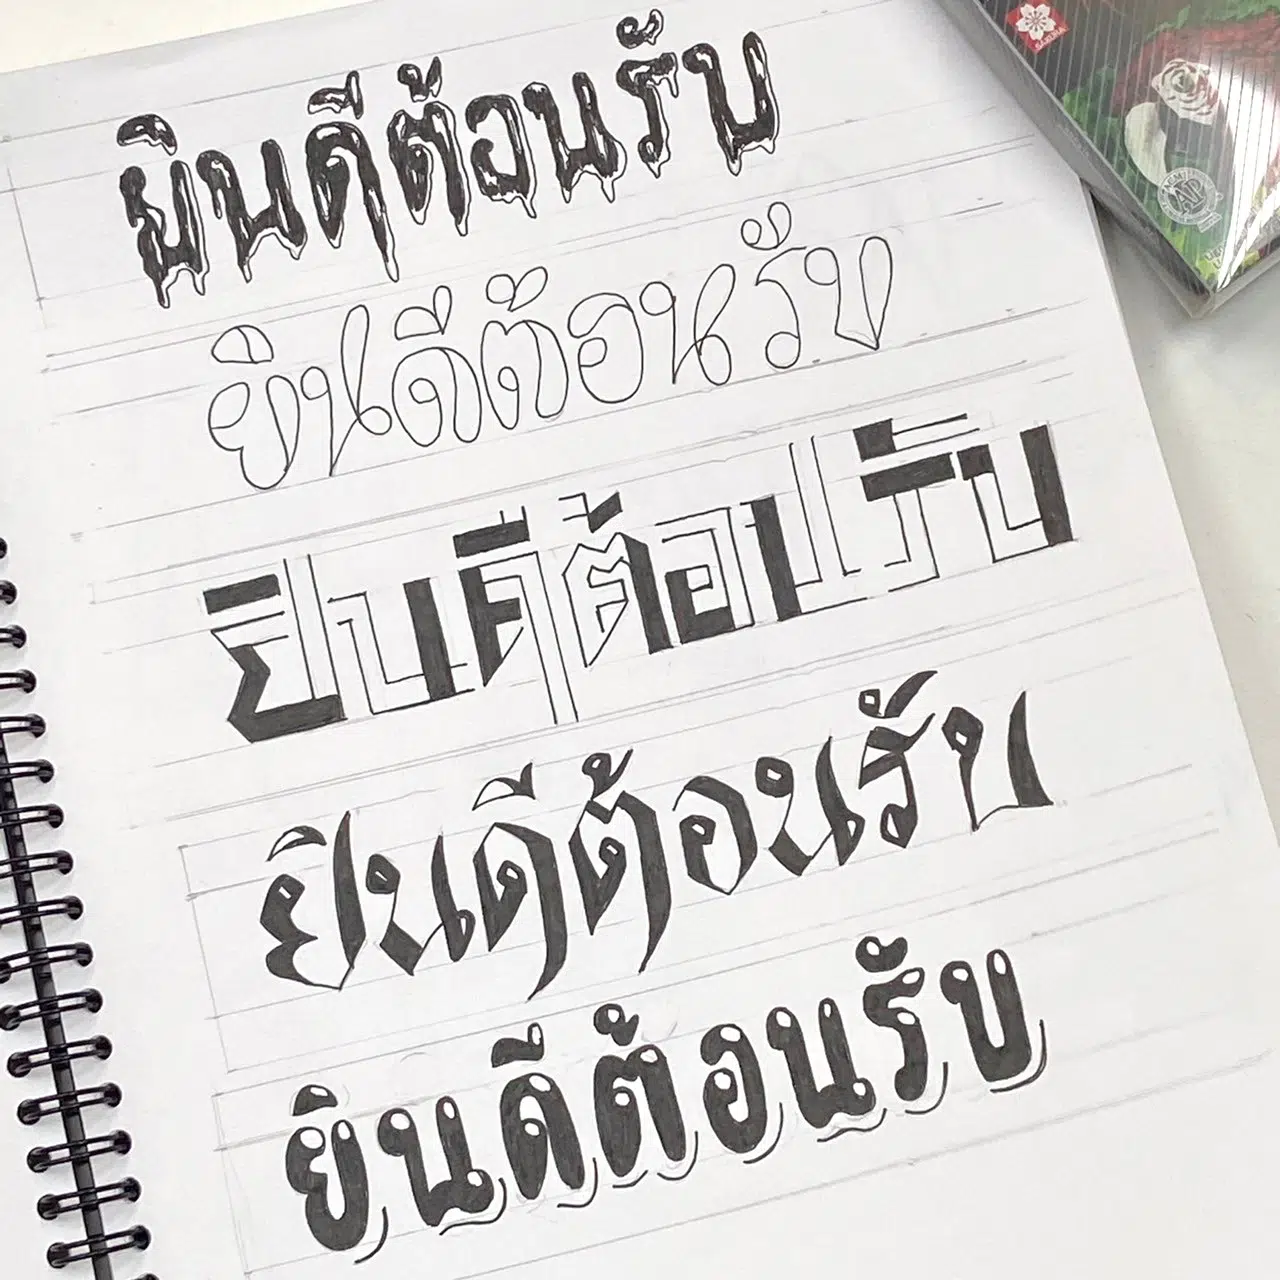 ยินดีต้อนรับ
ยินดีต้อนรับ
ยินดีต้อนรับ
ยินดีต้อนรับ
ยินดีต้อนรับ
SAKURA
AP